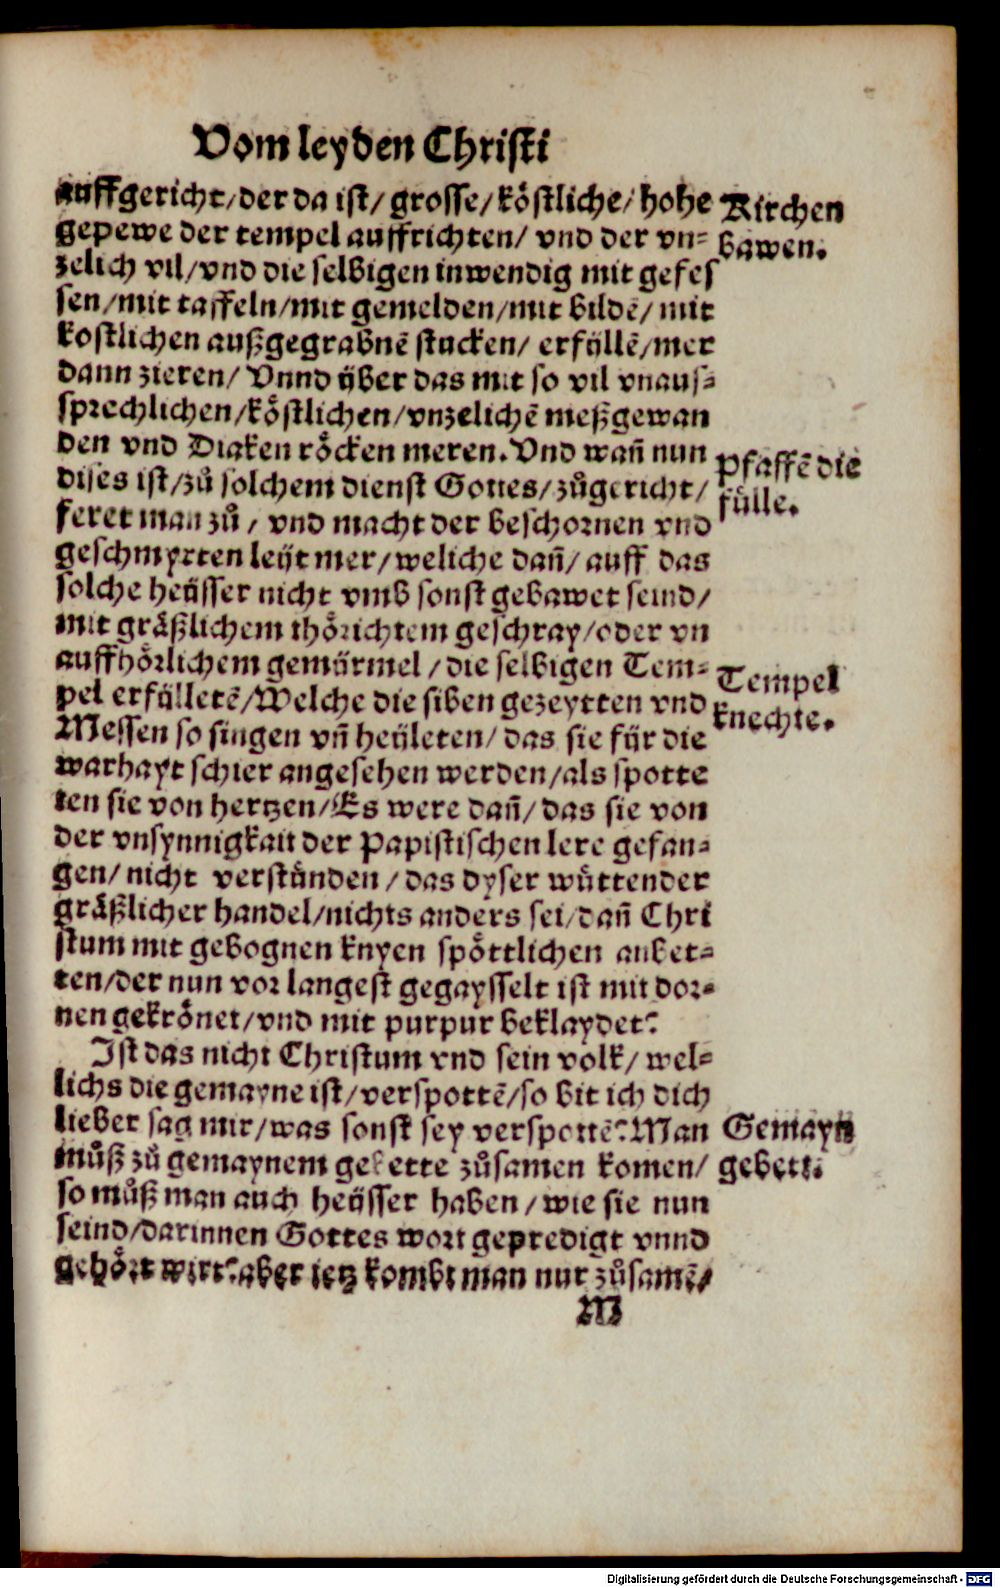 Vom leyden Christi
auffgericht/der da ist/ grosse/ köstliche/ hohe
Kirchen
gepewe der tempel auffrichten/ vnd der vn⸗
bawen.
zelich vil/vnd die selbigen inwendig mit gefes
sen/mit taffeln/mit gemelden/mit bildē/ mit
kostlichen außgegrabnē stucken/ erfüllē/mer
dann zieren/ Vnnd über das mit so vil vnaus⸗
sprechlichen/köstlichen/vnzelichē meßgewan
den vnd Diaken röcken meren. Vnd wañ nun
Pfaffē die
dises ist/zů solchem dienst Gottes/zůgericht/
fülle.
feret man zů/ vnd macht der beschornen vnd
geschmyrten leüt mer/weliche dañ/ auff das
solche heüsser nicht vmb sonst gebawet seind/
mit gräßlichem thörichtem geschray/oder vn
auffhörlichem gemürmel/die selbigen Tem⸗
Tempel
pel erfülletē/Welche die siben gezeytten vnd
knechte.
Messen so singen vñ heületen/ das sie für die
warhayt schier angesehen werden/als spotte
ten sie von hertzen/Es were dañ/das sie von
der vnsynnigkait der Papistischen lere gefan⸗
gen/ nicht verstünden/das dyser wüttender
gräßlicher handel/nichts anders sei/dañ Chri
stum mit gebognen knyen spöttlichen anbet⸗
ten/der nun vor langest gegaysselt ist mit dor⸗
nen gekrönet/vnd mit purpur beklaydet?
Ist das nicht Christum vnd sein volk/ wel⸗
lichs die gemayne ist/verspottē/so bit ich dich
lieber sag mir/was sonst sey verspottē? Man
Gemayn
můß zů gemaynem gebette zůsamen komen/
gebett.
so můß man auch heüsser haben/wie sie nun
seind/darinnen Gottes wort gepredigt vnnd
gehört wirt? aber ietz kombt man nur zůsamē/
M
Digitalisierung gefördert durch die Deutsche Forschungsgemeinschaft - DFG